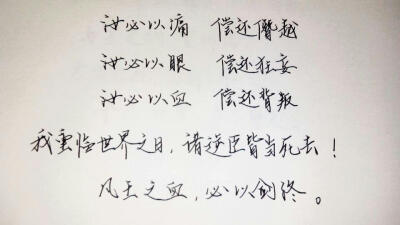 汝必以痛 偿还僭越
汝必以眼 偿还狂妄
汝必以血 偿还背叛
我重临世界之日,诸逆臣皆当死去!
凡王之血,必以剑终。